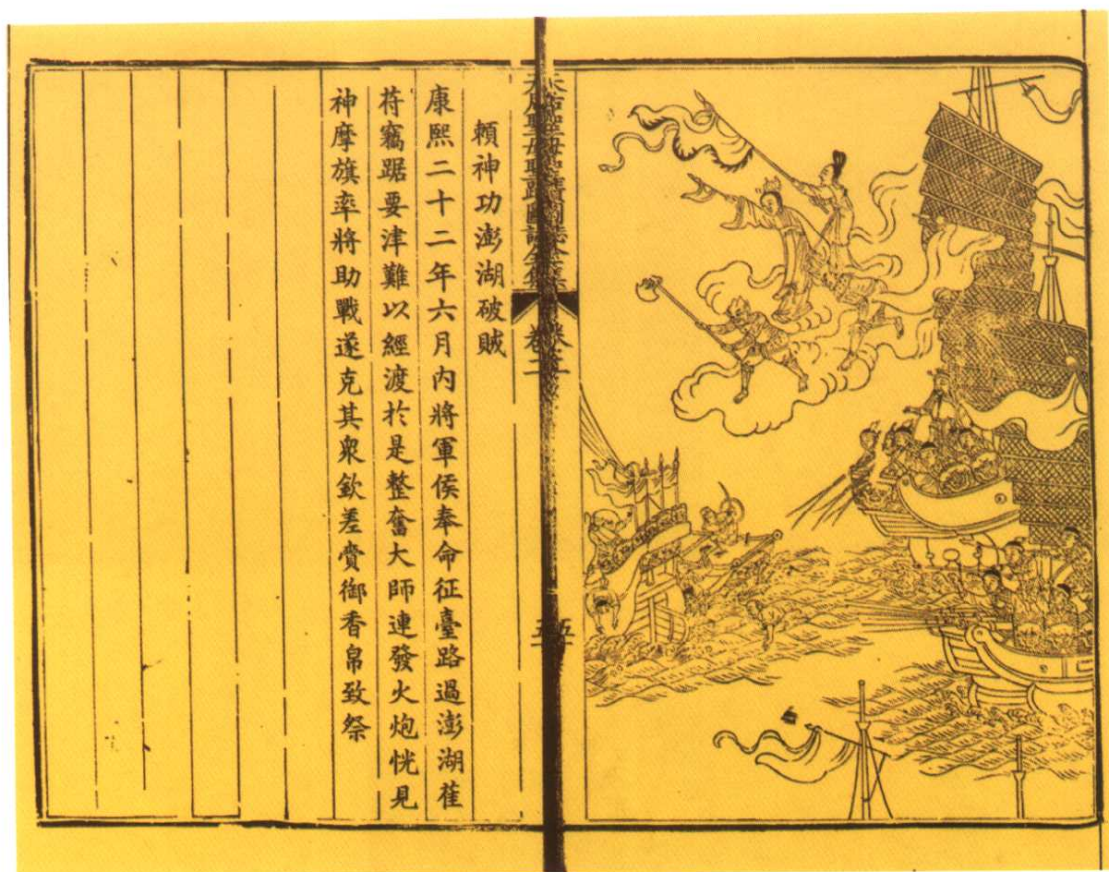 天后聖母聖蹟圖誌全集
卷二
賴神功澎湖破賊
康熙二十二年六月內將軍侯奉命征臺路過澎湖萑
苻竊踞要津難以經渡於是整奮大師連發火炮恍見
神摩旗率將助戰遂克其衆欽差賫御香帛致祭